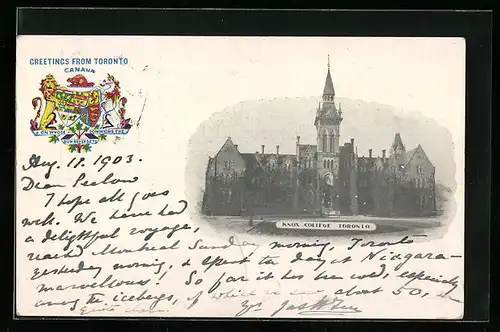 GREETINGS FROM TORONTO
CANADA
KNOX COLLEGE TORONTO
Aug. 18. 1903.
Dear
I hope all goes
well. We have had
a delightful voyage,
reached Montreal Sunday morning, Toronto
yesterday morning, & spent the day at Niagara -
marvellous! So far it has been cold, especially
among the icebergs, of which we saw about 50,